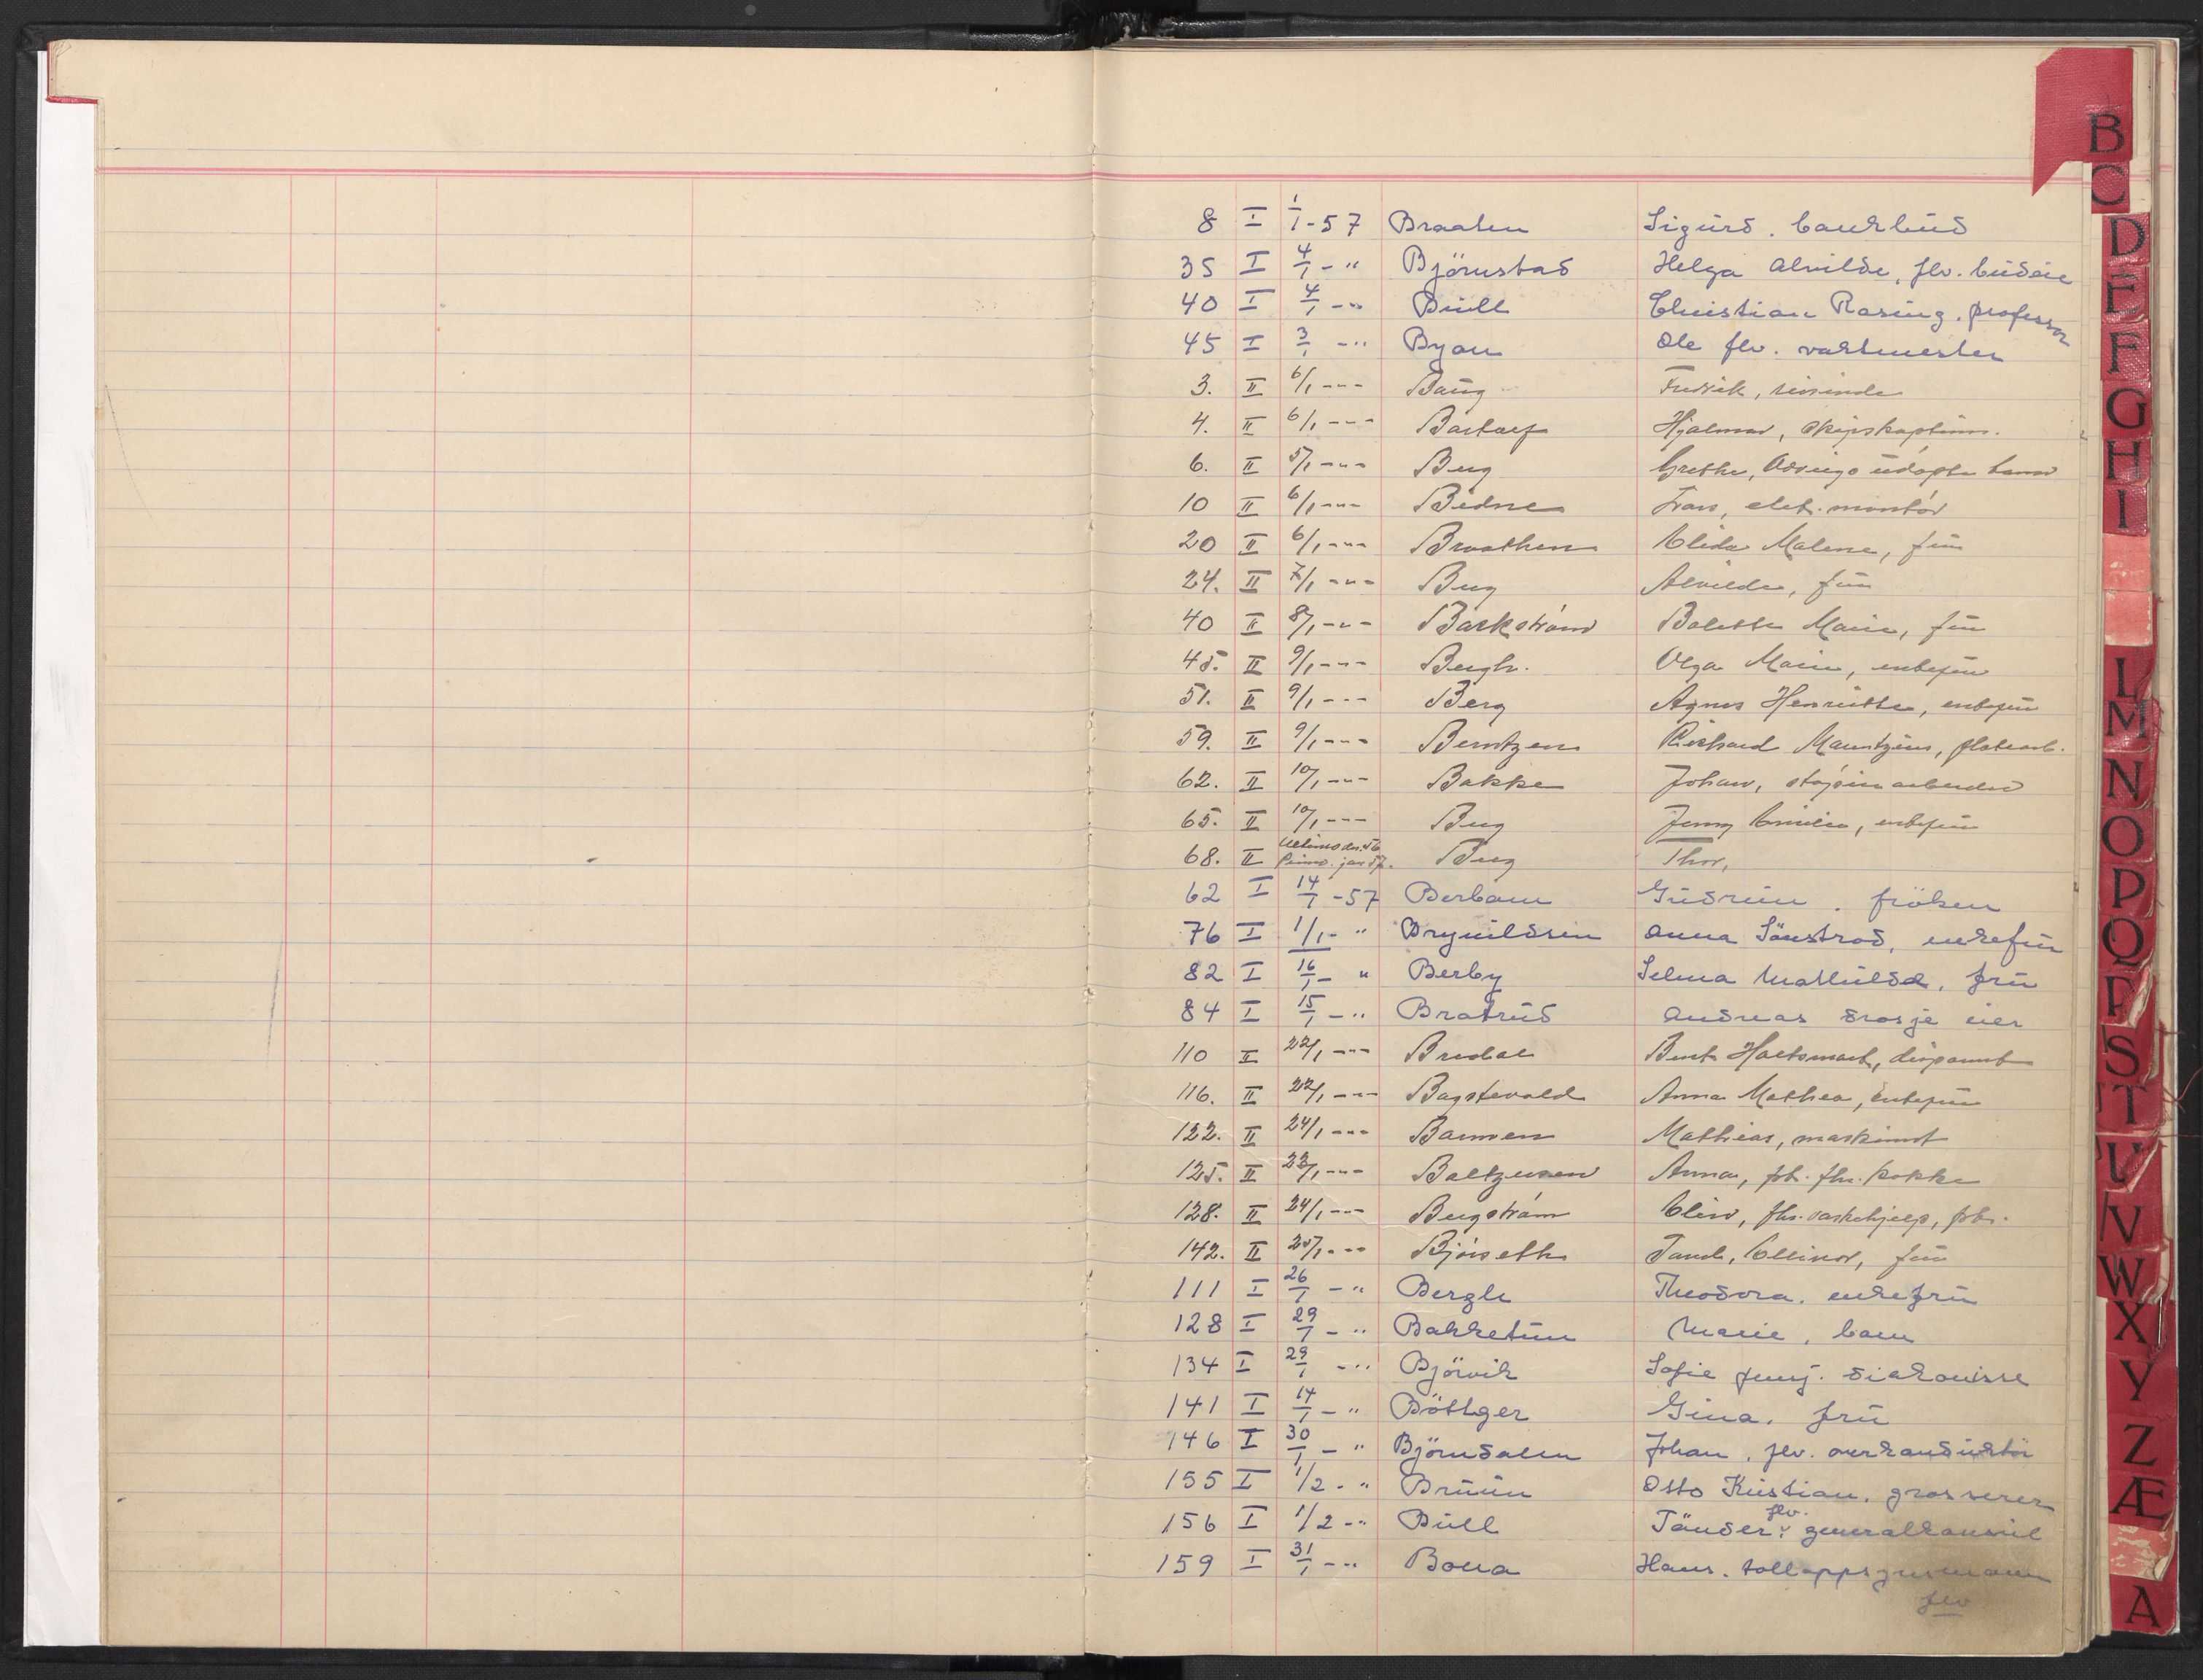 8 I 1/1-57 Braaten Sigurd. bankbud
35 I 4/1 - " Björnstad Helga Alvilde, flv. budeie
40 I 4/1 - " Bull Christian Rasing. professor
45 I 3/1 - " Byan Ole flv. vaktmester
3. II 6/1 - " - Baug Fredrik, reisende
4. II 6/1 - " - Hjalmar, skipskaptein.
6. II 5/1 - " - Berg Grethe, udøpte barn
10 II 6/1 - " - Bidne Frans, elek. montør
20 II 6/1 - " - Braathen Elida Malene, fru
24. II 7/1 - " - Berg Alvilde, fru
40 II 8/1 - " - Barkstrøm Bolette Marie, fru
45. II 9/1 - " - Bergh. Olga Marie, enkefru
51. II 9/1 - " - Berg Agnes Henriette, enkefru
59. II 9/1 - " - Berntzen Richard Mauritzius, platearb.
62. II 10/1 - " - Bakke Johan, støperiarbeider
65. II 10/1 - " - Berg Jenny Emilie, enkefru
68. II Ultimo des. 56 Primo. jan 57. Berg Thor,
62 I 14/1 - 57 Berbom Gudrun. fröken
76 I 1/1 - " Brynildsen Anna Sönstrød, enkefru
82 I 16/1 - " Berby Selma Mathilde, fru
84 I 15/1 - " Bratrud Andreas drosje eier
110 II 22/1 - " - Bredal Bent Holtsmark, disponent
116. II 22/1 - " - Bagstevold Anna Mathea, enkefru
122. II 24/1 - " - Barmen Mathias, maskinist
125. II 23/1 - " - Baltzersen Anna, frk. fhv. kokke
128. II 24/1 - " - Bergstrøm Elin, fhv. vaskehjelp, frk.
142. II 25/1 - " - Bjørseth Ellinor, fru
111 I 26/1 - " Bergli Theodora. enkefru
128 I 29/1 - " Bakketun Marie, barn
134 I 29/1 - " Björvik Sofie Jenny. diakonisse
141 I 14/1 - " Böttger Gina. fru
146 I 30/1 - " Björndalen Johan, flv. overkonduktör
155 I 1/2 - " Bruun Otto Kristian. grosserer
156 I 1/2 - " Bull Tander. flv. generalkonsul
159 I 31/1 - " Boua Hans. tolloppsynsmann flv
B
C
D
E
F
G
H
I
L
M
N
O
P
Q
R
S
T
U
V
W
X
Y
Z
Æ
A